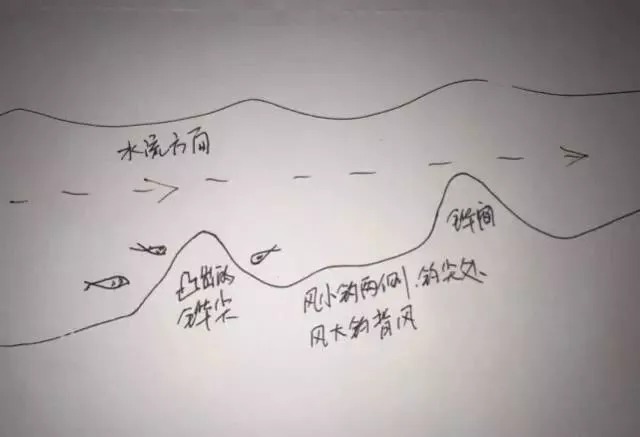 水流方向
凸出的
尖
风小钓两侧.钓尖处
风大钓背风